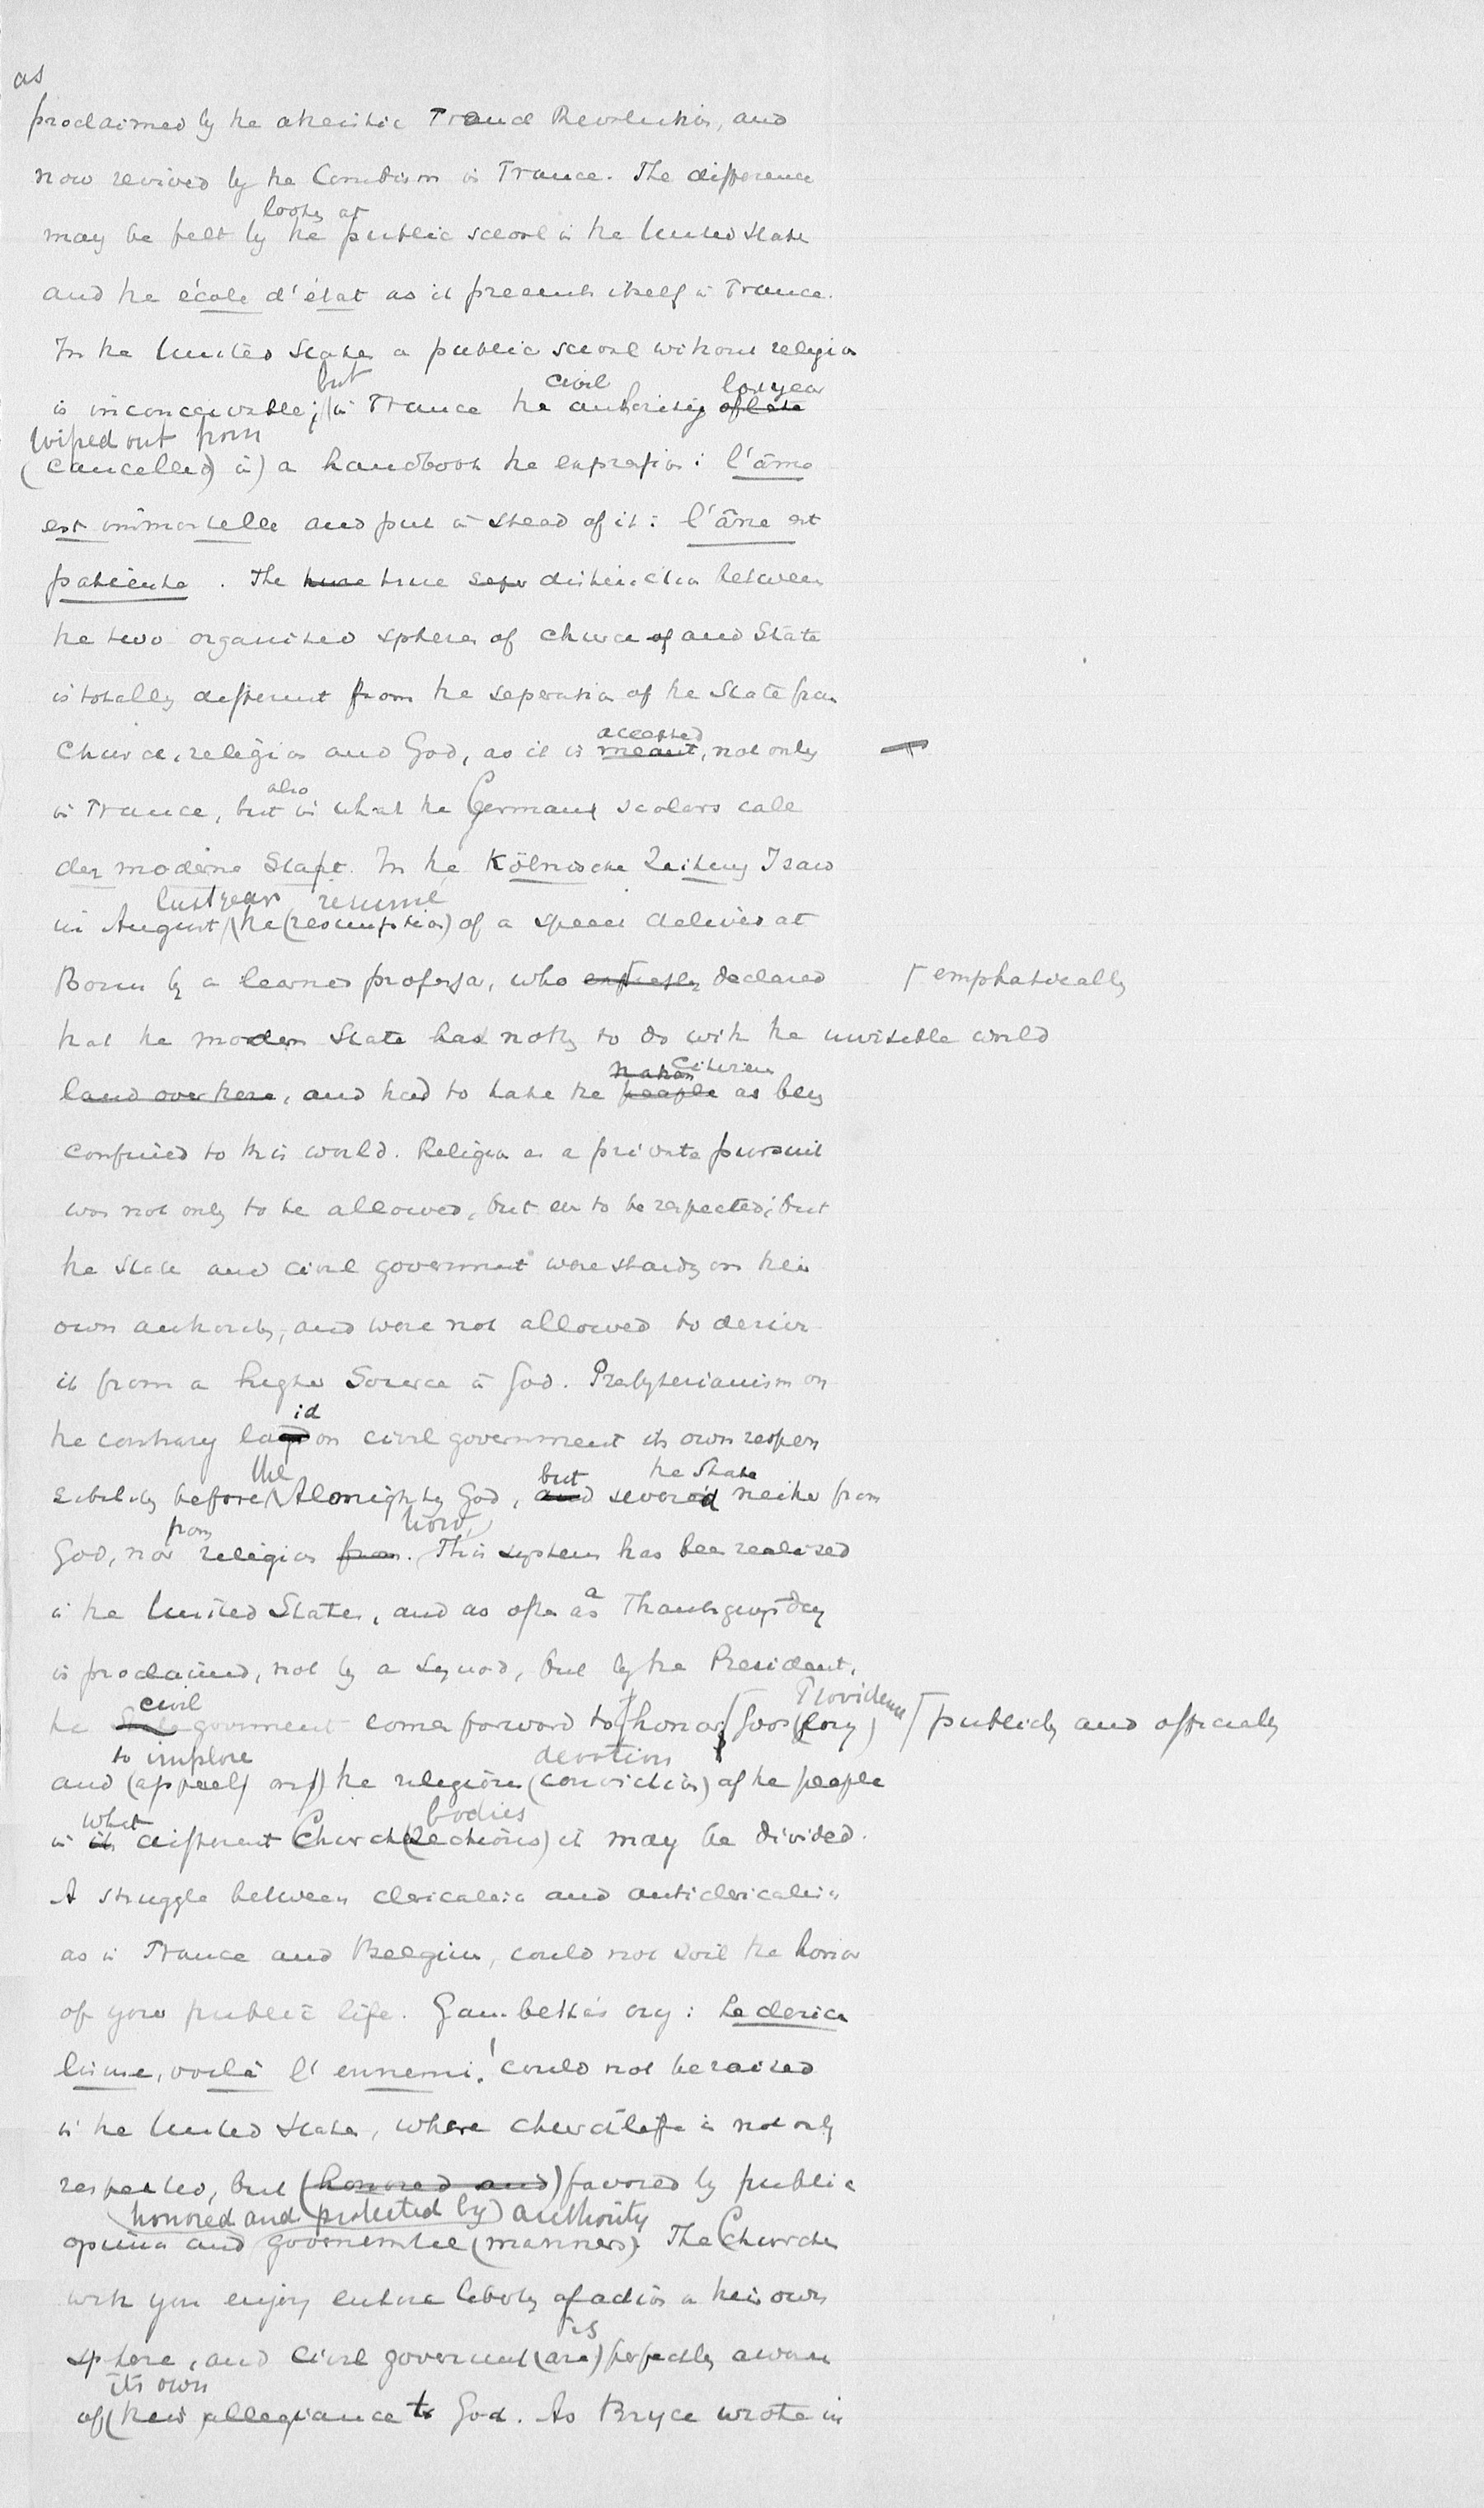 as
proclaimed by the atheistic French Revolution, and
now revived by the Combism in France. The difference
looking at
may be felt by the public school in the United States
and the école d'état as it presents itself in France.
In the United States a public school without religion
but civil last year
is inconceivable; in France the authority of late
wiped out from
(cancelled in) a handbook the expression: l'âme
est immortelle and put in stead of it: l'âne est
patiente. The true true sepe distinction between
the two organised spheres of church of and State
is totally different from the seperation of the State from
accepted
Church, religion and God, as it is meant, not only
also
in France, but in what the German scolars call
der moderne Staat. In the Kölnische Zeitung I saw
last year résumé
in August the (resumption) of a speech delivered at
Bonn by a learned professor, who expressly declared ⌈ emphatically
that the modern State had nothing to do with the invisible world
nation citizens
land over there, and had to take the people as being
confined to this world. Religion as a private pursuit
was not only to be allowed, but even to be respected; but
the State and civil government were standing on their
own authority, and were not allowed to derive
it from a higher Source in God. Presbyterianism on
id
the contrary layd on civil government its own respon
the but the State
sibility before Almighty God, and severed neither from
from now,
God, nor religion from. This system has been realised
a
in the United States, and as often as Thanksgivingsday
is proclaimed, not by a Synod, but by the President,
civil Providence
the State government comes forward to honor God's (glory) ⌈ publicly and officially
to implore devotion
and (appeals on) the religious (conviction) of the people
what bodies
in its different Church (Sections) it may be divided.
A struggle between clericalism and anticlericalism
as in France and Belgium, could not soil the honor
of your public life. Gambetta's cry: Le clerica
lisme, voilà l'ennemi! could not be raised
in the United States, where churchlife is not only
respected, but (honored and) favored by public
honored and protected by) authority
opinion and governmental (manners). The Churches
with you enjoy entire liberty of action in their own
is
sphere, and Civil government (are) perfectly aware
its own
of (their allegiance to God. As Bryce wrote in